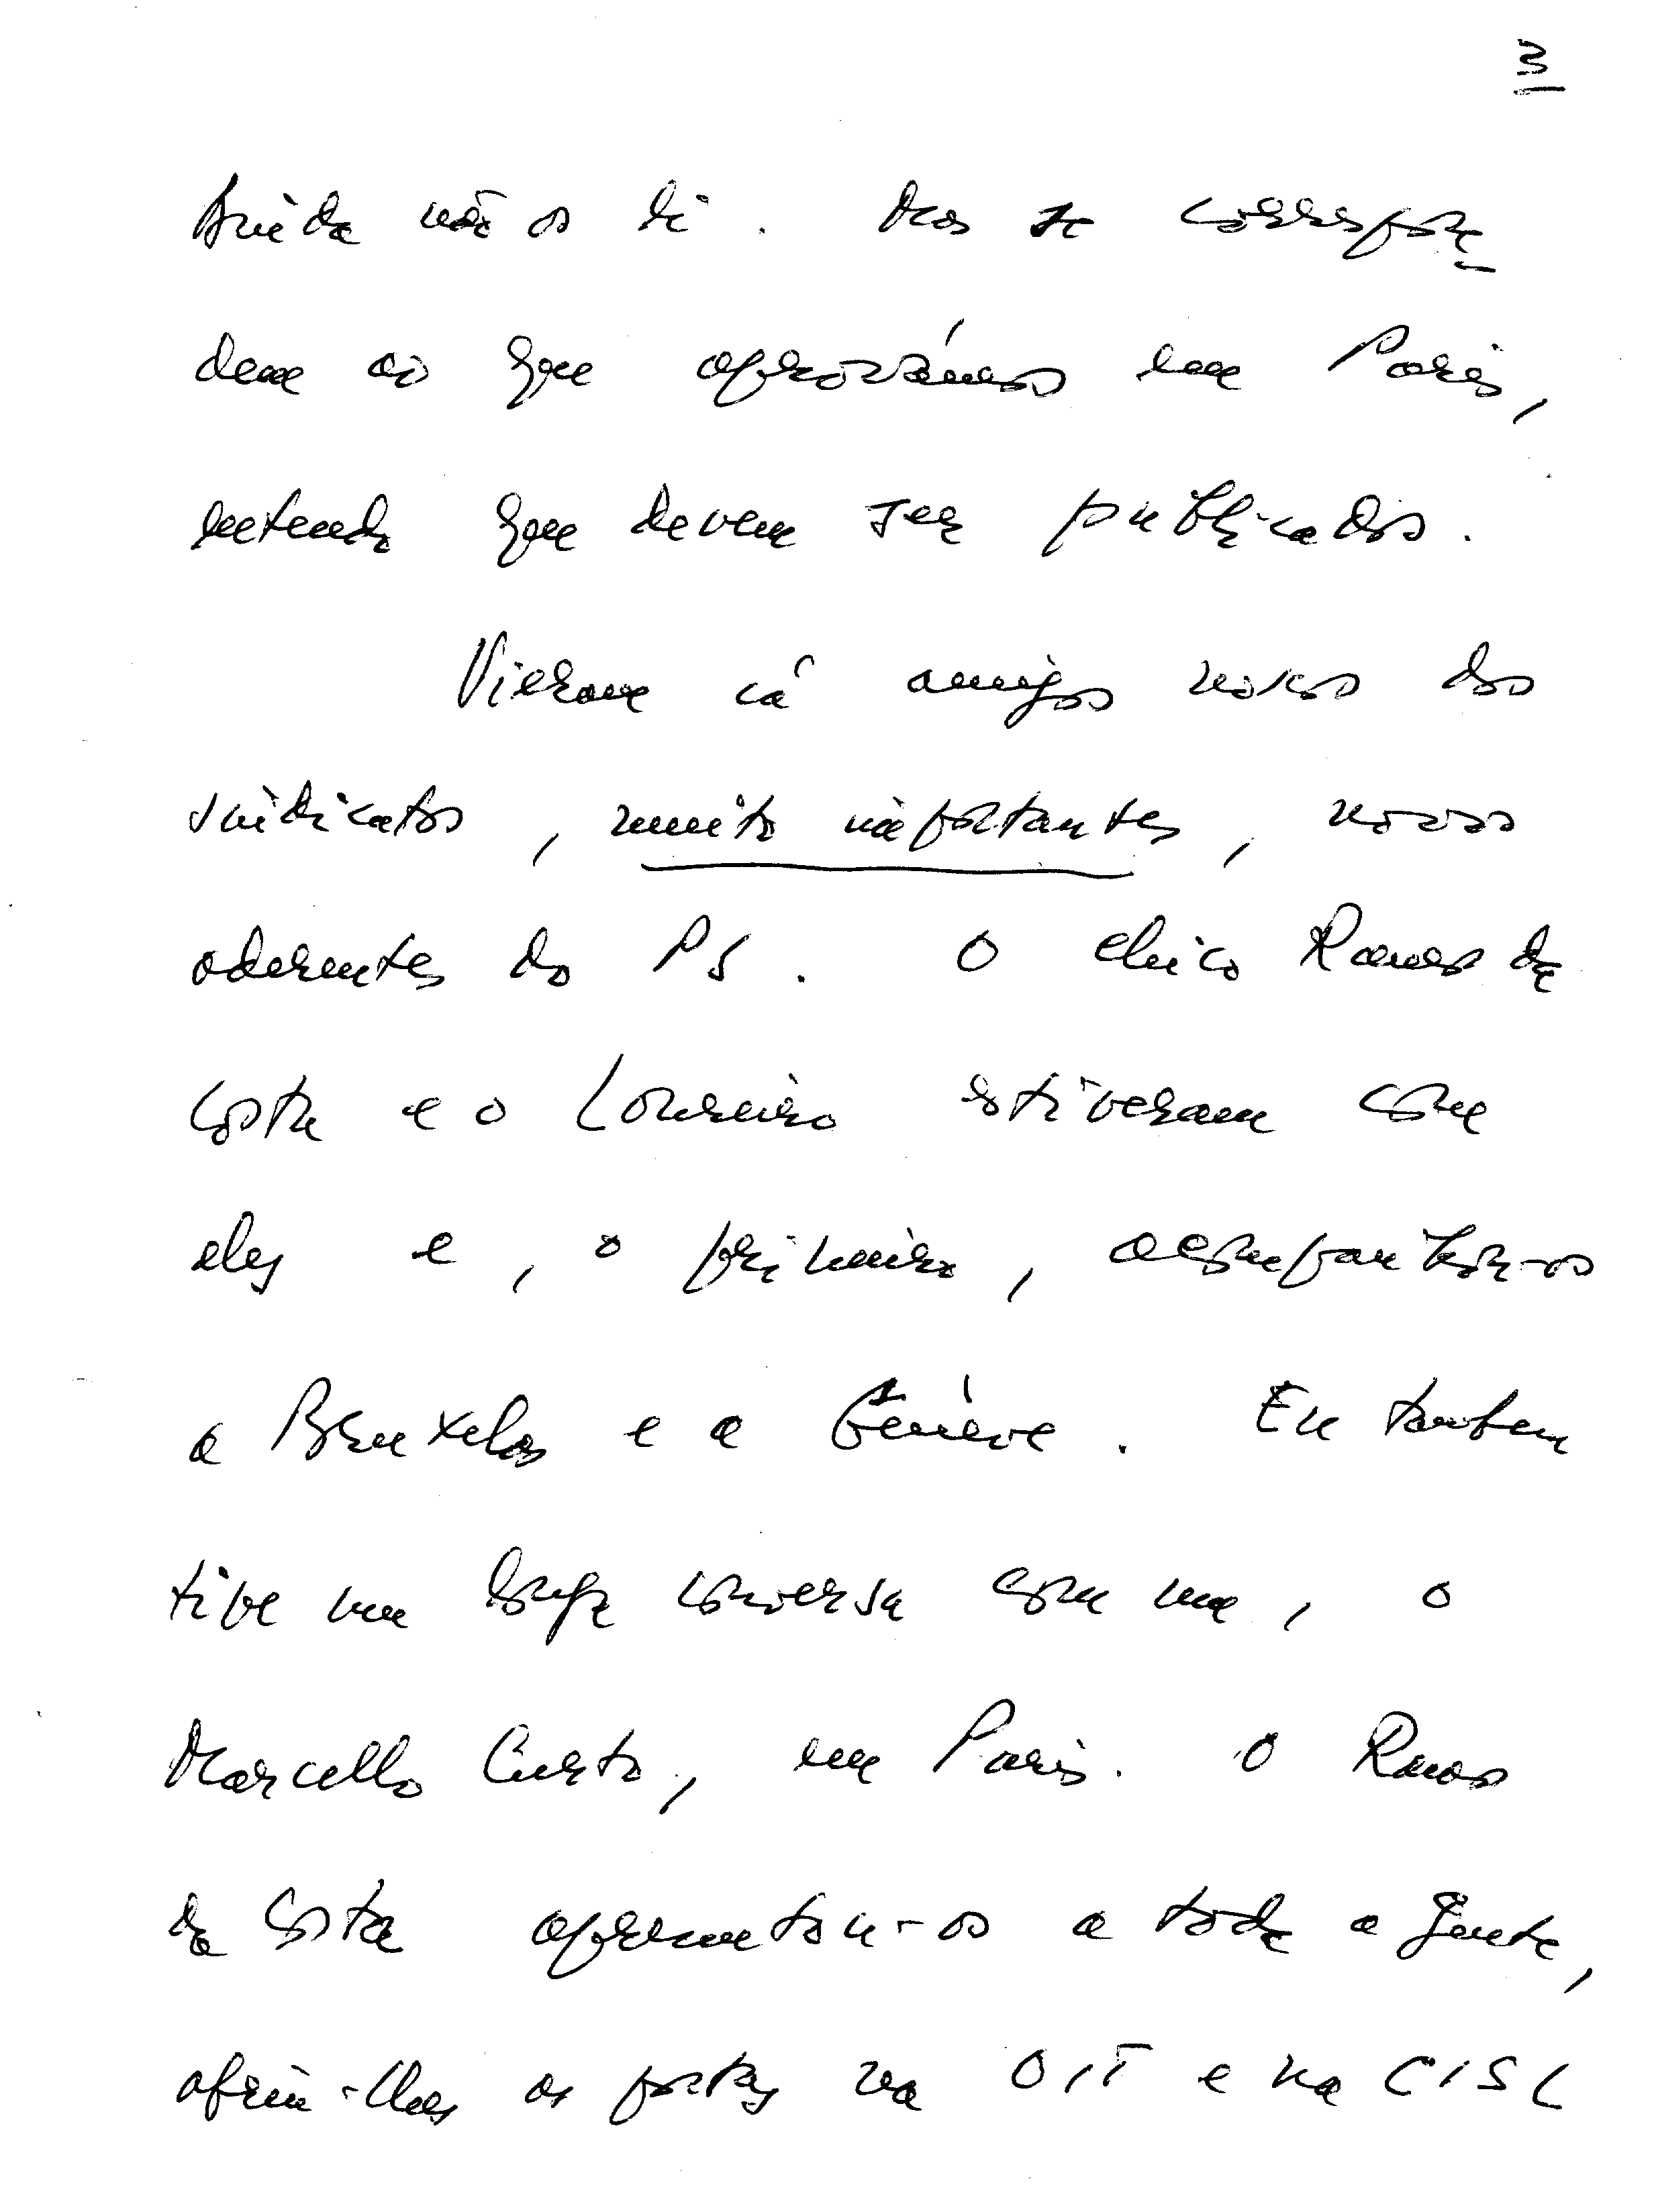 3
Ainda não os li. Mas se correspon
dem ao que aprovámos em Paris,
entendo que devem ser publicados.
Vieram cá amigos novos dos
sindicatos, muito importantes, novos
aderentes do PS. O Chico Ramos da
Costa e o Loureiro estiveram com
eles e, o primeiro, acompanhou-os
a Bruxelas e a Genève. Eu tambem
tive uma longa conversa com um, o
Marcello Curto, em Paris. O Ramos
da Costa apresentou-os a toda a gente,
abriu-lhes as portas na OIT e na CISL